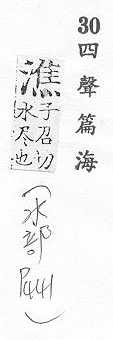 30四聲篇海
潐
子召切
水尽也
(水部P441)